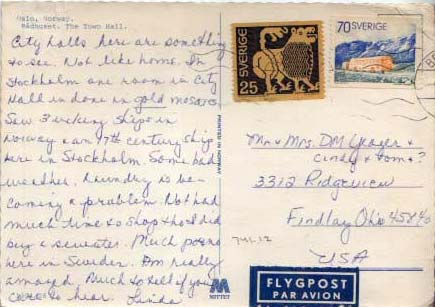 Oslo, Norway.
Rådhuset. The Town Hall.
City halls here are something
to see. Not like home. In
Stockholm one room in City
Hall in done in gold mosaics.
Saw 3 viking ships in
Norway & an 17th century ship
here in Stockholm. Some bad
weather. Laundry is be-
coming a problem. Not had
much time to shop tho I did
buy a sweater. Much
here in Sweden. I'm really
amazed. Much to tell if you
care to hear. Linda
PRINTED IN NORWAY
M
MITTET
SVERIGE
25
70 SVERIGE
Mr & Mrs. DM &
Cindy & Tom?
3312 Ridgeview
Findlay Ohio 45840
USA
FLYGPOST
PAR AVION